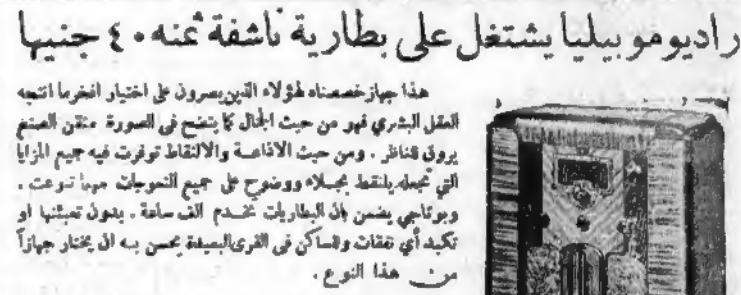 راديو موبيليا يشتغل على بطارية ناشفة ثمنه ٤٠ جنيها
هذا جهاز خصصناه لهؤلاء الذين يصرون على اختيار افخر ما انتجه
العقل البشري فهو من حيث الجمال كما يتضح فى الصورة متقن الصنع
يروق للناظر . ومن حيث الاذاعة والالتقاط توفرت فيه جميع المزايا
التي تجعله يلتقط بجلاء ووضوح على جميع التموجات مهما تنوعت .
وبوتاجي يضمن بان البطاريات تخدم الف ساعة . بدون تعبئتها او
تكبد أي نفقات والساكن فى القرى البعيدة يحسن به ان يختار جهازاً
من هذا النوع .